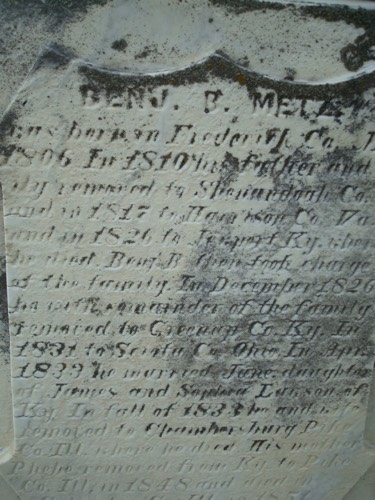 BENJ. B. METZ
was born in Frederick Co.
1806 In 1810 his Father and
removed to Shenandoah Co.
and in 1817 to Harrison Co. Va
and in 1826 to Ky. where
he died Benj. B. then took charge
of the family In December 1826
he with remainder of the family
removed to Greenup Co. Ky. In
1831 to Scioto Co. Ohio In
1833 he married Jane, daughter
of James and Sophia Lawson of
Ky. In fall of 1833 he and wife
removed to Chambersburg Pike
Co. Ill. where he died His mother
Phebe removed from Ky. to Pike
Co. Ill. in 1848 and died in